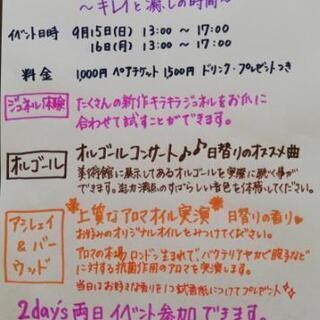 ～キレイと癒しの時間～
イベント日時 9月15日(日) 13:00 ～ 17:00
16日(月) 13:00 ～ 17:00
料金 1,000円 ペアチケット 1500円 ドリンク・プレゼントつき
ジェネル体験 たくさんの新作キラキラジェネルをお爪に
合わせて試すことができます。
オルゴール オルゴールコンサート♪♪日替りのオススメ曲
美術館に展示してあるオルゴールを実際に聴く事が
できます。迫力満点のすばらしい音色を体感してください。
アシュレイ&バーウッド 上質なアロマオイル実演 日替りの香り♥
お好みのオリジナルオイルをみつけてください。
アロマの本場ロンドン生まれで、バクテリアやカビ胞子など
に対する抗菌作用のアロマを実演します。
当日はお好きな香りを1つ試香紙につけてプレゼント☆
2day's 両日イベント参加できます。